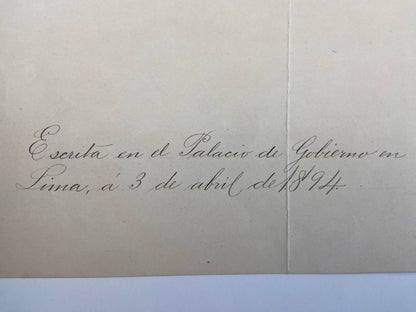 Escrita en el Palacio de Gobierno en
Lima, á 3 de abril de 1894.